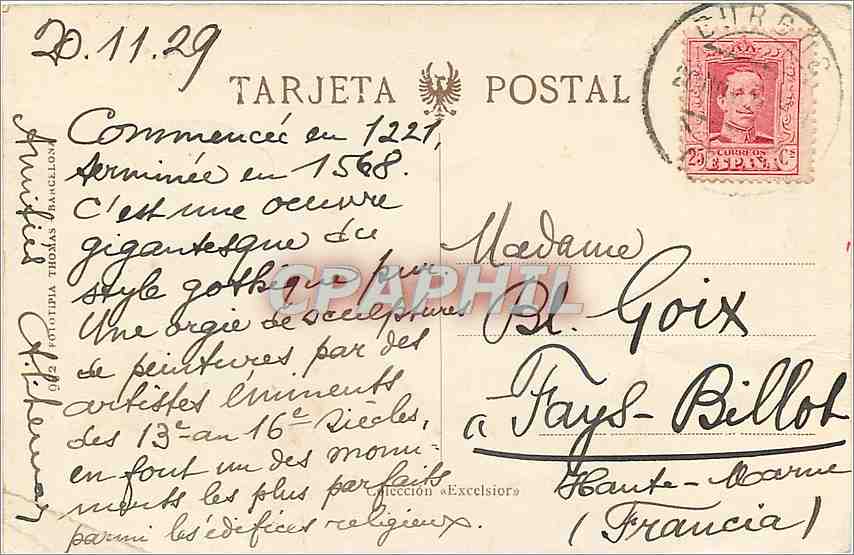 20.11.29
TARJETA POSTAL
Commencée en 1221,
terminée en 1568.
C'est une oeuvre
gigantesque du
style gothique pur.
Une orgie de sculptures
de peintures par des
artistes éminents
des 13e au 16e siècles,
en font un des monu-
ments les plus parfaits
parmi les édifices religieux.
Amitiés
FOTOTIPIA THOMAS BARCELONA
Colección «Excelsior»
BURGOS
25 CORREOS Cs
ESPAÑA
Madame
Bl. Goix
a Fays-Billot
Haute-Marne
(Francia)
CPAPHIL